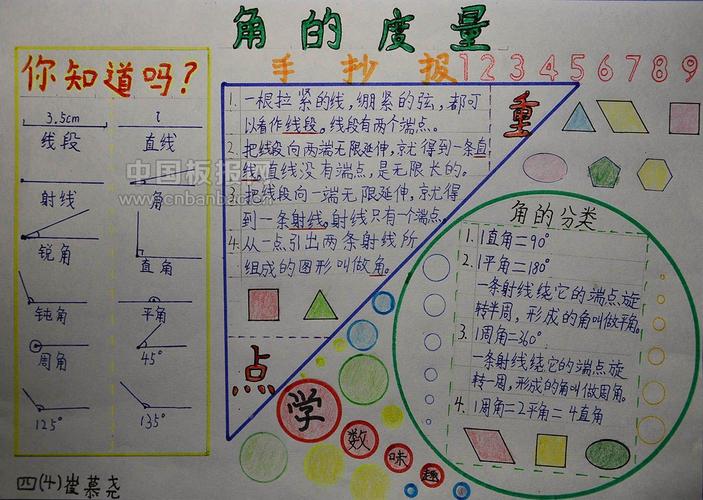 角的度量
手抄报 1 2 3 4 5 6 7 8 9
你知道吗？
3.5cm l
线段 直线
射线 角
锐角 直角
钝角 平角
周角 45°
125° 135°
四(4)崔慕尧
1. 一根拉紧的线，绷紧的弦，都可
以看作线段。线段有两个端点。
2. 把线段向两端无限延伸，就得到一条直
线。直线没有端点，是无限长的。
3. 把线段向一端无限延伸，就得
到一条射线。射线只有一个端点。
4. 从一点引出两条射线所
组成的图形叫做角。
重
点
角的分类
1. 1直角=90°
2. 1平角=180°
一条射线绕它的端点旋
转半周，形成的角叫做平角。
3. 1周角=360°
一条射线绕它的端点旋
转一周，形成的角叫做周角。
4. 1周角=2平角=4直角
学
数
味
趣
中国板报网
www.cnbanbao.cn